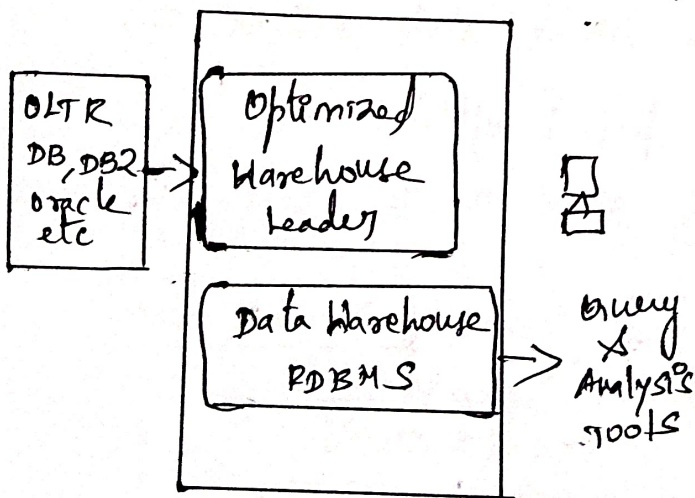 OLTR
DB, DB2
oracle
etc
Optimized
Warehouse
Leader
Data Warehouse
RDBMS
Query
&
Analysis
Tools